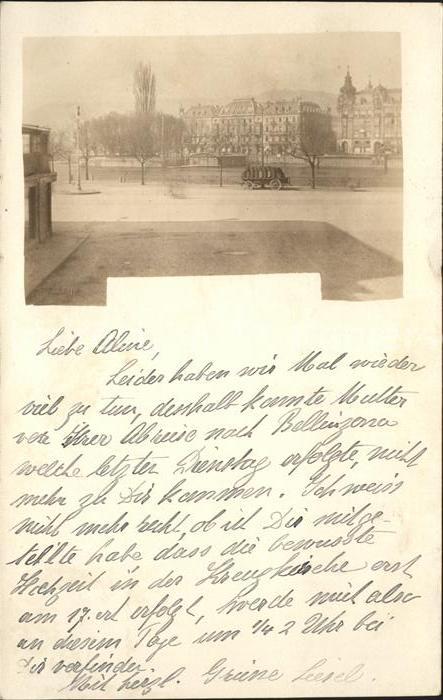 Liebe Aline,
Leider haben wir Mal wieder
viel zu tun, desshalb konnte Mutter
vor Ihrer Abreise nach Bellinzona
welche letzten Dienstag erfolgte, nicht
mehr zu Dir kommen. Ich weiss
nicht mehr recht, ob ich Dir mitge-
teilte habe dass die bewusste
Hochzeit in der Kreuzkirche erst
am 17. ert erfolgt, werde mich also
an diesem Tage um 1/4 2 Uhr bei
Dir vorfinden.
Mit herzl. Grüsse Liesel.